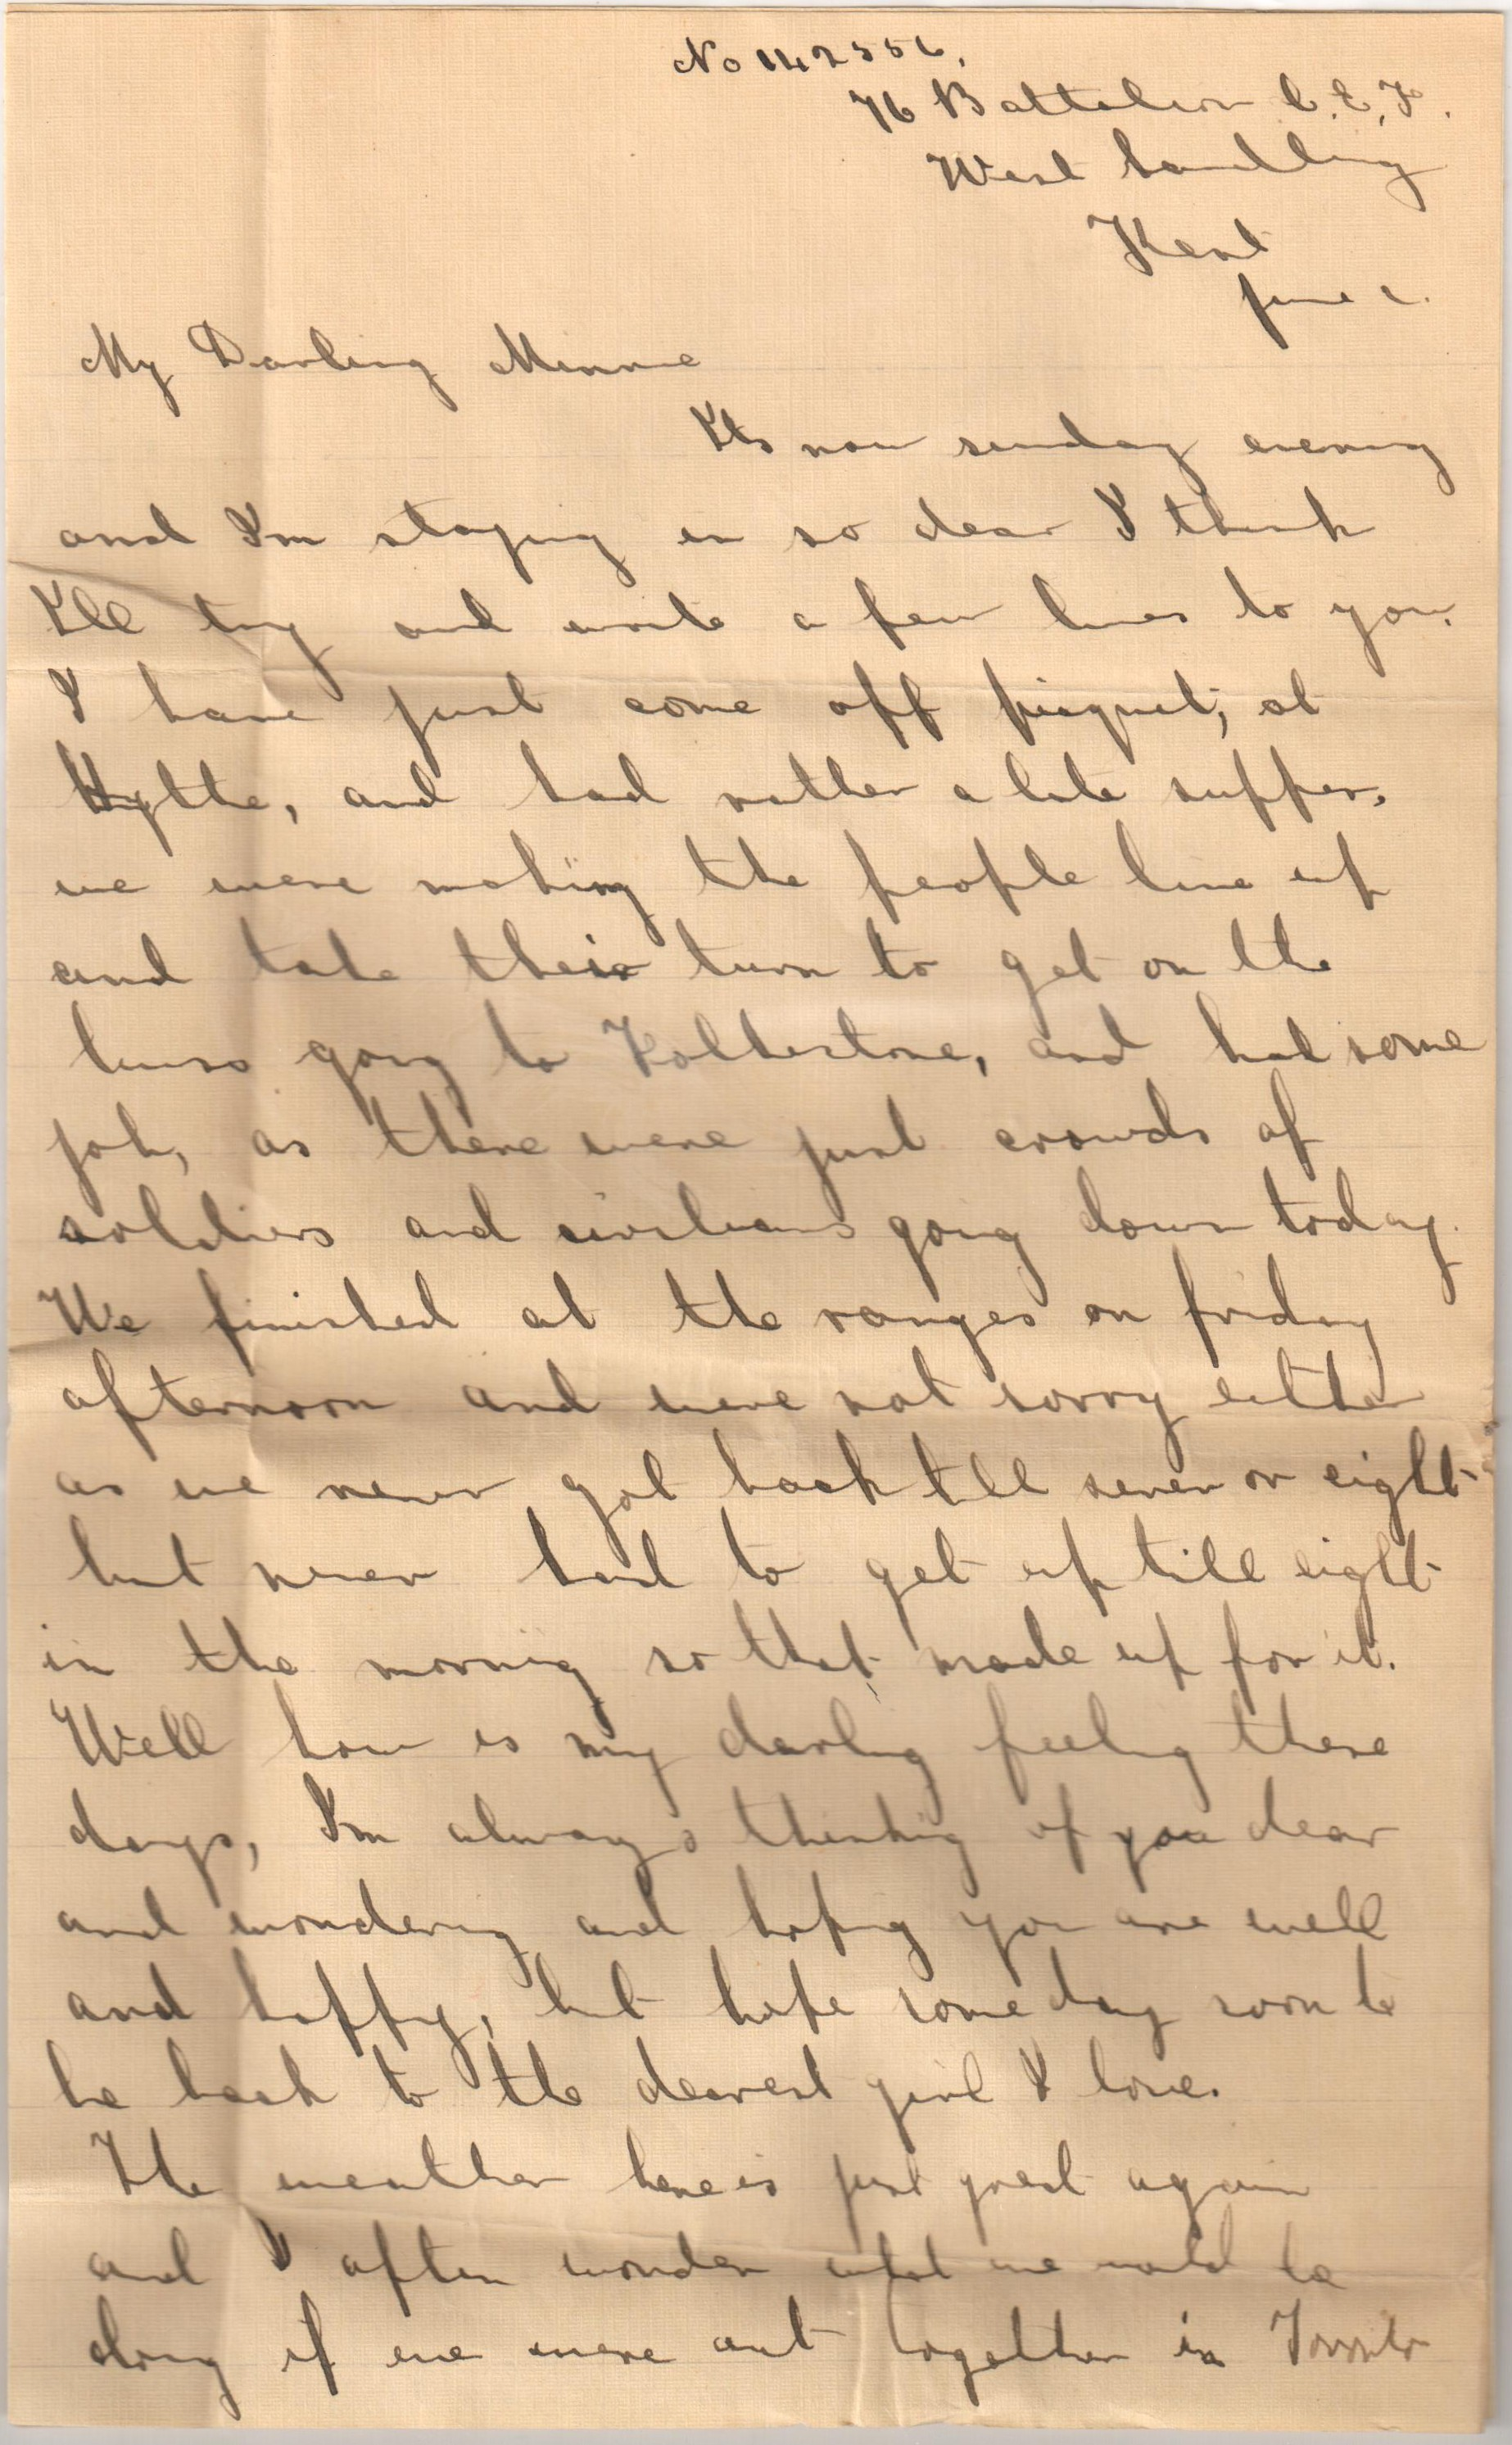 No 142556,
76 Battalion C.E.F.
West Sandling
Kent
June
My Darling Minnie
Its now sunday evening
and I'm staying in so dear I think
I'll try and write a few lines to you.
I have just come off picquet, at
Hythe, and had rather a late supper.
we were making the people line up
and take their turn to get on the
buses going to Folkestone, and had some
job, as there were just crowds of
soldiers and civilians going down today.
We finished at the ranges on friday
afternoon and were not sorry either
as we never got back till seven or eight
but never had to get up till eight
in the morning so that made up for it.
Well how is my darling feeling these
days, I'm always thinking of you dear
and wondering and hoping you are well
and happy, but hope some day soon to
be back to the dearest girl I love.
The weather here is just great again
and I often wonder what we would be
doing if we were out together in Toronto